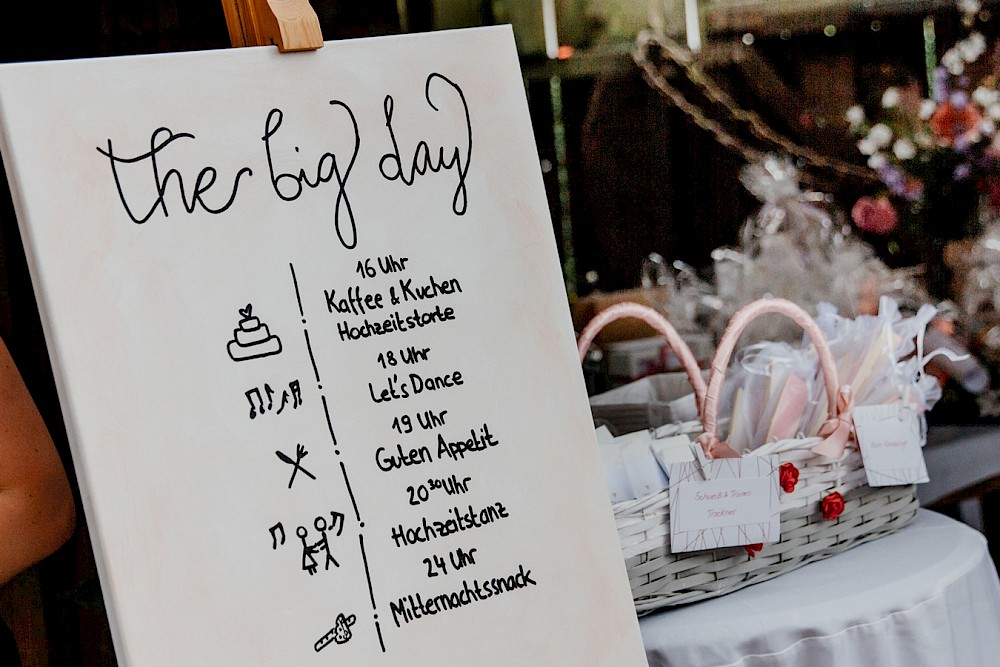 the big day
16 Uhr
Kaffee & Kuchen
Hochzeitstorte
18 Uhr
Let's Dance
19 Uhr
Guten Appetit
20³⁰ Uhr
Hochzeitstanz
24 Uhr
Mitternachtssnack
Schweiß & Tränen
Trockner